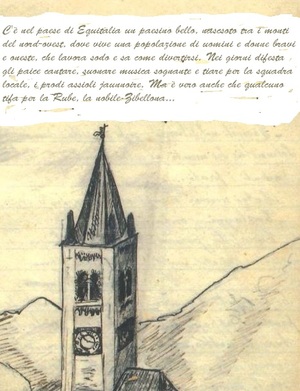 C'è nel paese di Equitalia un paesino bello, nascsoto tra i monti
del nord-ovest, dove vive una popolazione di uomini e donne bravi
e oneste, che lavora sodo e sa come divertirsi. Nei giorni difesta
gli paice cantare, suonare musica sognante e tiare per la squadra
locale, i prodi assioli jaunnoire. Ma è vero anche che qualcuno
tifa per la Rube, la nobile-Zibellona...